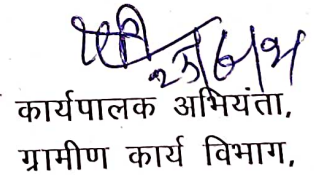 23/6/21
कार्यपालक अभियंता,
ग्रामीण कार्य विभाग,